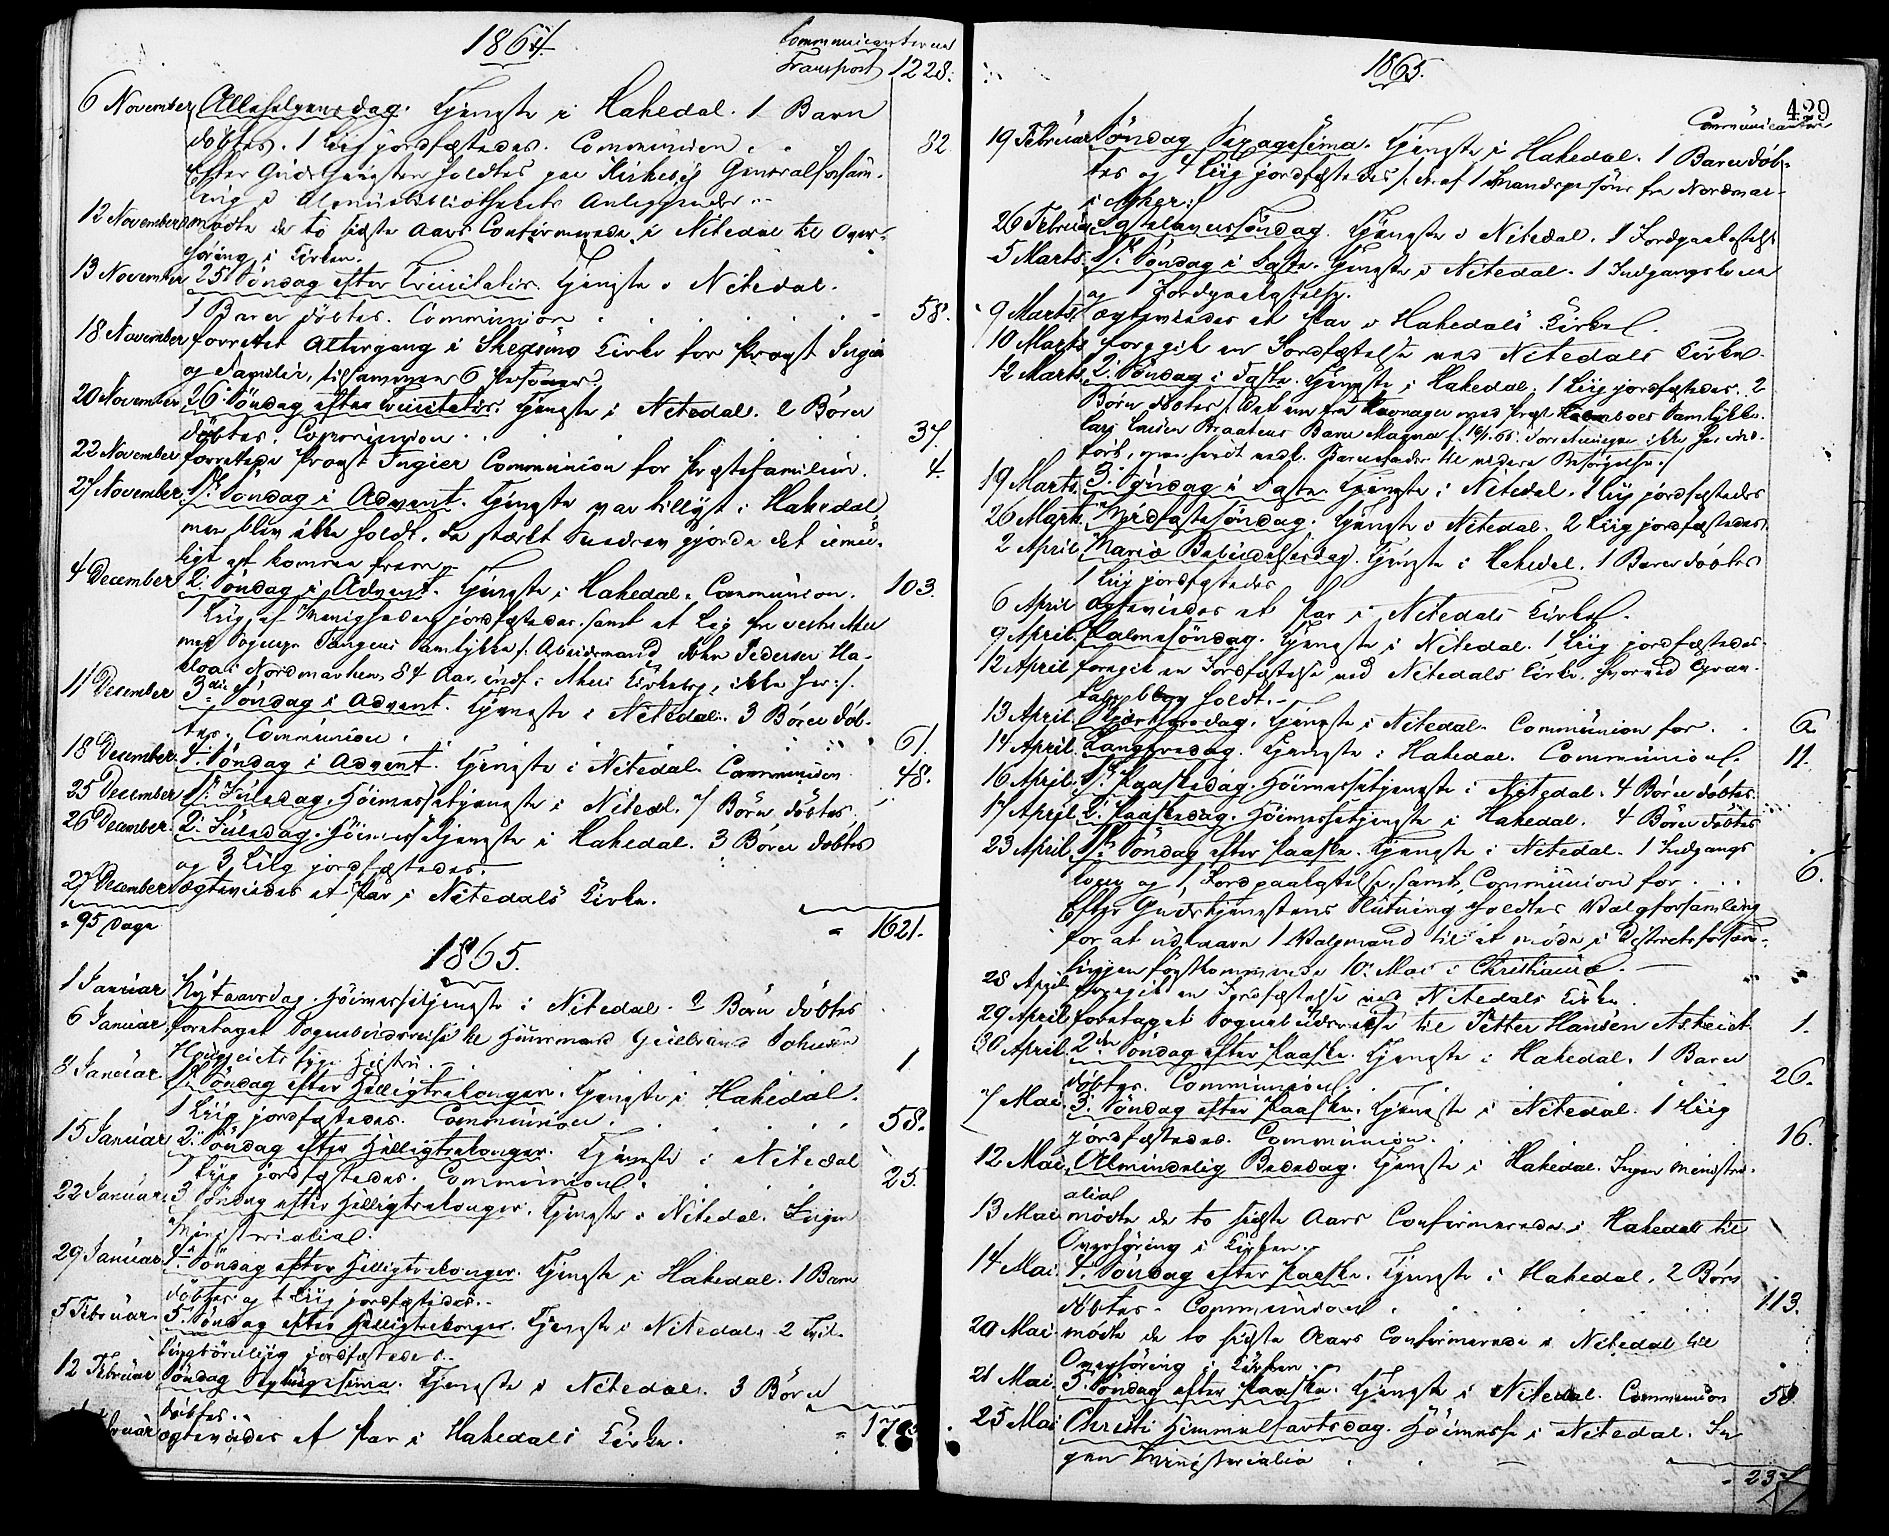 1864.
Communicanternes
Transport 1228.
6 November Allehelgensdag. Tjeneste i Hakedal. 1 Barn
döbtes. 1 Liig jordfæstedes. Communion. 82
Efter Gudstjenesten holdtes paa Kirkevej Generalforsam-
ling i Almuebibliothekets Anliggender.
12 November mødte de to sidste Aars Confirmerede i Nitedal til Over-
höring i Kirken.
13 November 25. Söndag efter Trinitatis. Tjeneste i Nitedal.
1 Barn döbtes. Communion 58.
18 November forrettet Altergang i Skedsmo Kirke for Provst Ingier
og Familie, tilsammen 6 Personer.
20 November 26. Söndag efter Trinitatis. Tjeneste i Nitedal. 2 Börn
döbtes. Communion. 37.
22 November forrettede Provst Ingier Communion for Præstefamilien. 4.
27 November 1ste Söndag i Advent. Tjeneste var tillyst i Hakedal,
men blev ikke holdt, da stærkt Sneedrev gjorde det umu-
ligt at komme frem.
4 December 2. Söndag i Advent. Tjeneste i Hakedal. Communion. 103.
1 Liig af Menigheden jordfæstedes, samt et Lig fra vestre Aker
med Sognepr. Tangens Samtykke /: Arbeidsmand John Pedersen Ha-
kloa i Nordmarken, 84 Aar, indf. i Akers Kirkebog, ikke her :/.
11 December 3die Söndag i Advent. Tjeneste i Nitedal. 3 Börn döb-
tes. Communion. 61.
18 December 4. Söndag i Advent. Tjeneste i Nitedal. Communion 48.
25 December 1ste Juledag. Höimessetjeneste i Nitedal. 7 Börn döbtes.
26 December 2. Juledag. Höimessetjeneste i Hakedal. 3 Börn döbtes
og 3 Liig jordfæstedes.
27 December ægteviedes et Par i Nitedals Kirke.
= 95 Dage = 1621.
1865.
1 Januar Nytaarsdag. Höimessetjeneste i Nitedal. 2 Börn döbtes
6 Januar foretaget Sognebudsreise til Huusmand Gulbrand Johnsen
Haugeiets syge Hustru. 1
8 Januar 1ste Söndag efter Helligtrekonger. Tjeneste i Hakedal.
1 Liig jordfæstedes. Communion. 58.
15 Januar 2. Söndag efter Helligtrekonger. Tjeneste i Nitedal
1 Liig jordfæstedes. Communion. 25.
22 Januar 3 Söndag efter Helligtrekonger. Tjeneste i Nitedal. Ingen
Ministerialia.
29 Januar 4. Söndag efter Helligtrekonger. Tjeneste i Hakedal. 1 Barn
döbtes og 1 Liig jordfæstedes.
5 Februar 5. Söndag efter Helligtrekonger. Tjeneste i Nitedal. 2 Tvil-
lingbörnliig jordfæstedes.
12 Februar Söndag Septuagesima. Tjeneste i Nitedal. 3 Börn
döbtes.
bruar ægteviedes et Par i Hakedals Kirke.
1865.
429
Communicanter
19 Februar Söndag Sexagesima. Tjeneste i Hakedal. 1 Barn döb-
tes og 4 Liig jordfæstedes /: d. af 1 Mandsperson fra Nordmar-
i Aker :/
26 Februar Fastelavnssöndag. Tjeneste i Nitedal. 1 Jordpaakastelse
5 Marts 1ste Söndag i Faste. Tjeneste i Nitedal. 1 Indgangskone
og 1 Jordpaakastelse.
9 Marts ægteviedes et Par i Hakedals Kirke.
10 Marts foregik en Jordfæstelse ved Nitedals Kirke.
12 Marts 2. Söndag i Faste. Tjeneste i Hakedal. 1 Liig jordfæstedes. 2
Börn döbtes /: det ene fra med Præst Samtykke.
Lars Larsen Braatens Barn Magna f. ikke her ind-
fört, men sendt medl. Barnefader til videre Besörgelse :/
19 Marts 3. Söndag i Faste. Tjeneste i Nitedal. 1 Liig jordfæstedes
26 Marts Midfastesöndag. Tjeneste i Nitedal. 2 Liig jordfæstedes.
2 April Mariæ Bebudelsesdag. Tjeneste i Hakedal. 1 Barn döbtes
1 Liig jordfæstedes
6 April ægteviedes et Par i Nitedals Kirke.
9 April Palmesöndag. Tjeneste i Nitedal. 1 Liig jordfæstedes.
12 April foregik en Jordfæstelse ved Nitedals Kirke, hvorved Grav-
tale blev holdt.
13 April Skjærtorsdag. Tjeneste i Nitedal. Communion for 6.
14 April Langfredag. Tjeneste i Hakedal. Communion. 11.
16 April 1ste Paaskedag. Höimessetjeneste i Nitedal. 4 Börn döbtes.
17 April 2. Paaskedag. Höimessetjeneste i Hakedal. 4 Börn döbtes
23 April 1ste Söndag efter Paaske. Tjeneste i Nitedal. 1 Indgangs-
kone og 1 Jordpaakastelse, samt Communion for 6.
Efter Gudstjenestens Slutning holdtes Valgforsamling
for at udnævne 1 Valgmand til at möde i Districtsforsam-
lingen förstkommende 10. Mai i Christiania.
28 April foregik en Jordfæstelse ved Nitedals Kirke.
29 April foretaget Sognebudsreise til Petter Hansen Askeiet 1.
30 April 2den Söndag efter Paaske. Tjeneste i Hakedal. 1 Barn
döbtes. Communion. 26.
7 Mai 3. Söndag efter Paaske. Tjeneste i Nitedal. 1 Liig
jordfæstedes. Communion. 16.
12 Mai Almindelig Bededag. Tjeneste i Hakedal. Ingen Ministeri-
alia
13 Mai mödte de to sidste Aars Confirmerede i Hakedal til
Overhöring i Kirken.
14 Mai 4. Söndag efter Paaske. Tjeneste i Hakedal. 2 Börn
döbtes. Communion. 113.
20 Mai mödte de to sidste Aars Confirmerede i Nitedal til
Overhöring i Kirken.
21 Mai 5. Söndag efter Paaske. Tjeneste i Nitedal. Communion 58
25 Mai Christi Himmelfartsdag. Höimesse i Nitedal. In-
gen Ministerialia
= 237